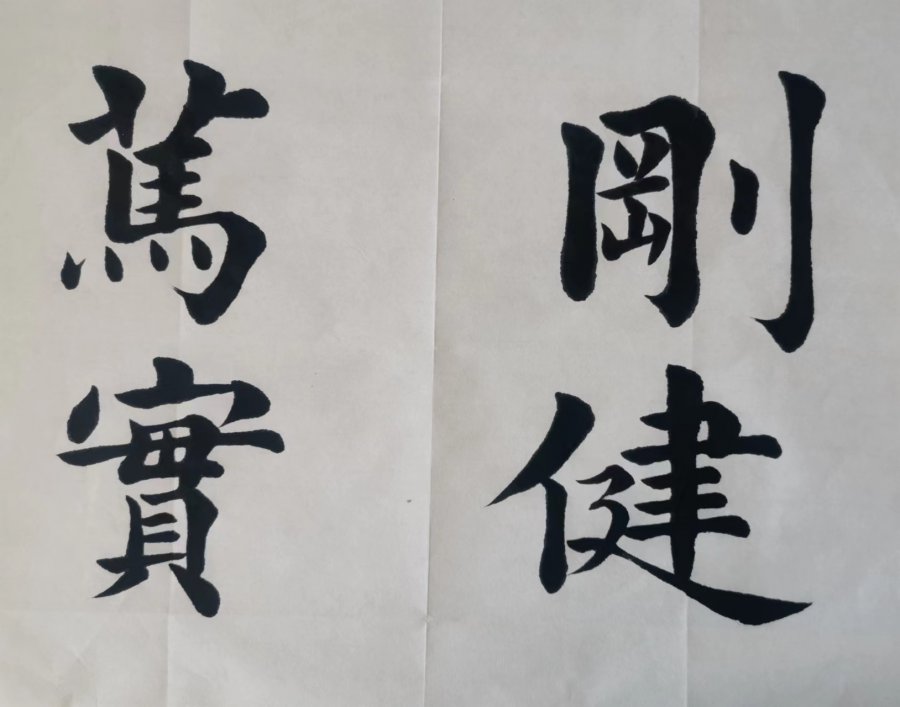 剛健
篤實